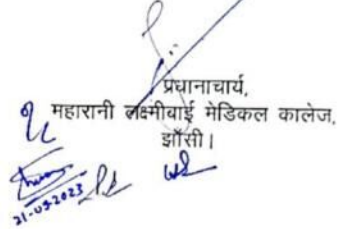 प्रधानाचार्य,
महारानी लक्ष्मीबाई मेडिकल कालेज,
झाँसी।
21-09-2023